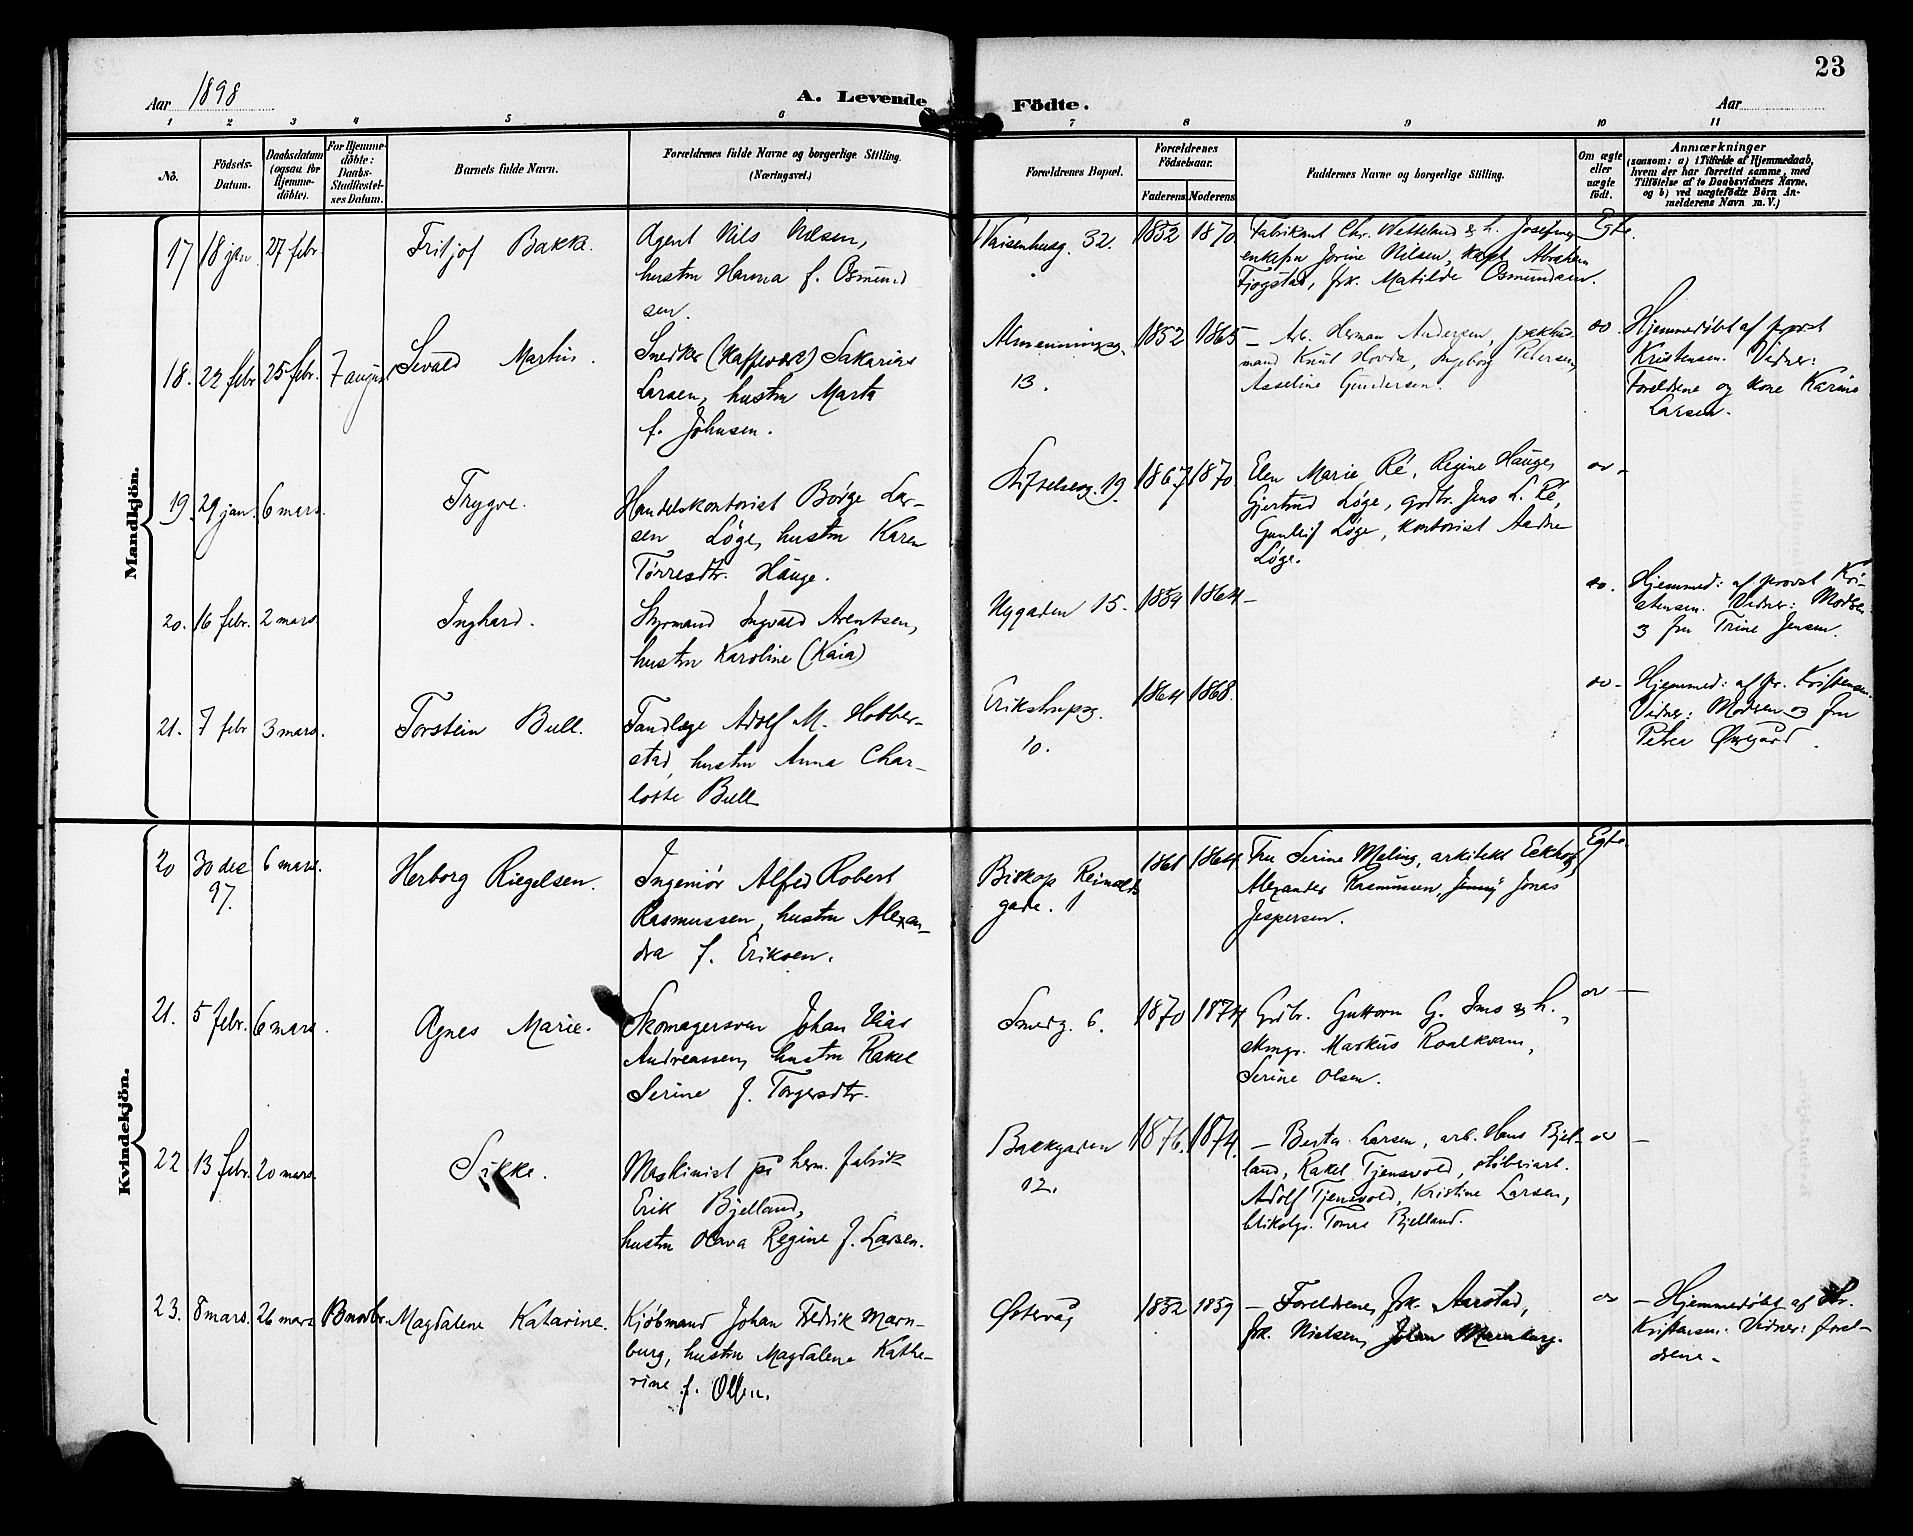 23
Aar 1898
A. Levende Födte.
Aar
1 2 3 4 5 6 7 8 9 10 11
No.
Födsels-Datum.
Daabsdatum (ogsaa for Hjemme-döbte).
For Hjemme-döbte: Daabs-Stadfæstel-ses Datum.
Barnets fulde Navn.
Forældrenes fulde Navne og borgerlige Stilling.
(Næringsvei.)
Forældrenes Bopæl.
Forældrenes Födselsaar.
Faderens Moderens
Faddernes Navne og borgerlige Stilling.
Om ægte eller uægte födt.
Anmærkninger
(saasom: a) i Tilfælde af Hjemmedaab,
hvem der har forrettet samme, med
Tilföielse af to Daabsvidners Navne,
og b) ved uægtefödte Börn An-
melderens Navn m. V.)
Mandkjön.
17 18 jan. 27 febr.
Fritjof Bakke.
Agent Nils Nilsen,
hustru Hanna f. Osmund
sen.
Vaisenhusg. 32.
1852 1870
Fabrikant Chr. Wetteland & h. Josefine,
enkefru Jorine Nilsen, Kapt. Abraham
Fjogstad, frk. Matilde Osmundsen.
Egte.
18. 22 febr 25 febr. 7 august
Sevald Martin.
Snedker (Kaffevært) Sakarias
Larsen, hustru Marta
f. Johnsen.
Almenningsg.
13.
1852 1865
— Arb. Herman Andersen,
mand Knut Hovda, Ingeborg Petersen,
Asseline Gundersen.
Hjemmedøbt af provst
Kristensen. Vidner:
Foreldrene og kone Karine
Larsen.
19. 29 jan. 6 mars.
Trygve.
Handelskontorist Børge Lar-
sen Løge, hustru Karen
Tørresdtr. Hauge.
Stiftelsesg. 19
1867 1870
Elen Marie Ré, Regine Hauge,
Gjertrud Løge, grdbr. Jens L. Ré,
Gunleif Løge, kontorist Aadne
Løge.
20. 16 febr. 2 mars
Inghard.
Styrmand Ingvald Arentsen,
hustru Karoline (Kaia)
Nygaden 15.
1859 1864
—
Hjemmed: af provst Kri-
stensen. Vidner: Modren
& fru Trine Jensen.
21. 7 febr 3 mars.
Torstein Bull.
Tandlæge Adolf M. Hobber-
stad, hustru Anna Char-
lotte Bull
Erikstrupsg.
10.
1864 1868.
Hjemmed: af pr. Kristensen.
Vidner: Modren og fru
Petra
Kvindekjön.
20 30 dec 97. 6 mars.
Herborg Riegelsen.
Ingeniør Alfred Robert
Rasmussen, hustru Alexan-
dra f. Eriksen.
Biskop Reinalds
gade.
1861 1864.
Fru Serine Meling, arkitekt Eckhoff,
Alexander Rasmussen, Jenny Jonas
Jespersen.
Egte.
21. 5 febr. 6 mars.
Agnes Marie.
Skomagersven Johan Elias
Andreassen, hustru Rakel
Serine f. Torgersdtr.
Smedg. 6.
1870 1874
Grdbr. Guttorm G. Ims & h.,
skmgr. Markus Roalkvam,
Serine Olsen.
22 13 febr. 20 mars.
Sikke.
Maskinist på herm. fabrik
Erik Bjelland,
hustru Olava Regine f. Larsen.
Bakkegaden
12.
1876. 1874.
— Berta Larsen, arb. Hans Bjel-
land, Rakel Tjensvold, støberiarb.
Adolf Tjensvold, Kristine Larsen,
blikslgr. Tomas Bjelland.
23. 8 mars. 26 mars
Magdalene Katarine.
Kjøbmand Johan Fredrik Marn-
burg, hustru Magdalene Kathe-
rine f. Olsen.
Østervåg
1852 1859
— Foreldrene, frk. Aarstad,
frk. Nielsen, Johan Marnburg.
— Hjemmedøbt af pr.
Kristensen. Vidner: forel-
drene.